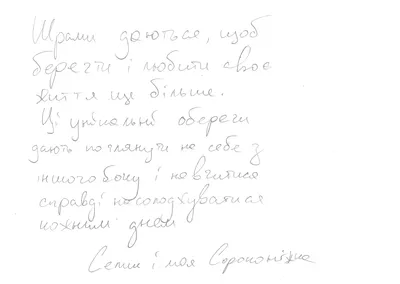 Шрами даються, щоб
берегти і любити своє
життя ще більше.
Ці унікальні обереги
дають поглянути на себе з
іншого боку і навчитися
справді насолоджуватися
кожним днем
і моя Сороконіжка